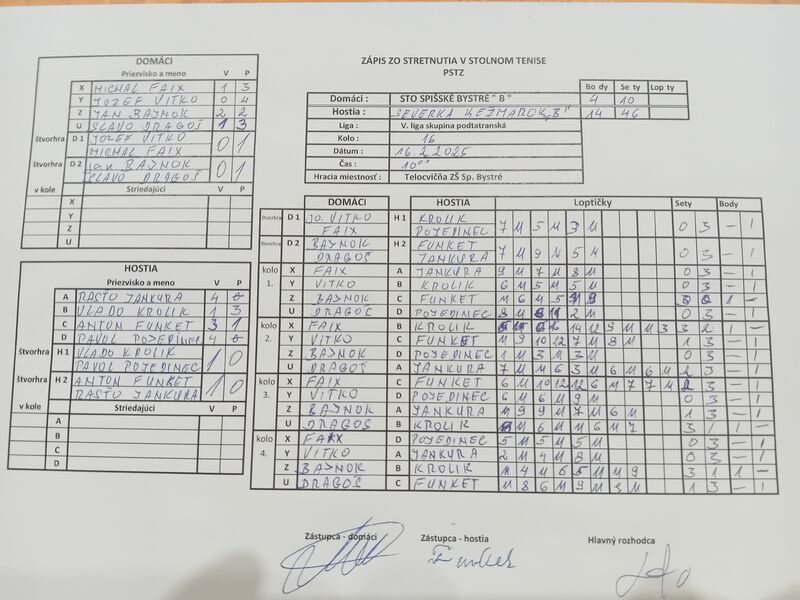 DOMÁCI
Priezvisko a meno V P
X MICHAL FAIX 1 3
Y JOZEF VITKO 0 4
Z JAN BAJNOK 2 2
U SLAVO DRAGOŠ 1 3
štvorhra D 1 JOZEF VITKO 0 1
MICHAL FAIX
štvorhra D 2 Jan BAJNOK 0 1
SLAVO DRAGOŠ
v kole Striedajúci
X
Y
Z
U
HOSTIA
Priezvisko a meno V P
A RASTO JANKURA 4
B VLADO KROLIK 1 3
C ANTON FUNKET 3 1
D PAVOL POJEDINEC 4
štvorhra H 1 VLADO KROLIK 1 0
PAVOL POJEDINEC
štvorhra H 2 ANTON FUNKET 1 0
RASTO JANKURA
v kole Striedajúci
A
B
C
D
ZÁPIS ZO STRETNUTIA V STOLNOM TENISE
PSTZ
Bo dy Se ty Lop ty
Domáci : STO SPIŠSKÉ BYSTRÉ " B " 4 10
Hostia : SEVERKA KEŽMAROK "B" 14 46
Liga : V. liga skupina podtatranská
Kolo : 16
Dátum : 16.2.2025
Čas : 10°°
Hracia miestnosť : Telocvičňa ZŠ Sp. Bystré
DOMÁCI HOSTIA Loptičky Sety Body
štvorhra D 1 JO. VITKO H 1 KROLIK
FAIX POJEDINEC 7 11 5 11 3 11 0 3 - 1
štvorhra D 2 BAJNOK H 2 FUNKET
DRAGOŠ JANKURA 7 11 9 11 5 11 0 3 - 1
kolo 1. X FAIX A JANKURA 9 11 7 11 8 11 0 3 - 1
Y VITKO B KROLIK 6 11 5 11 5 11 0 3 - 1
Z BAJNOK C FUNKET 11 6 11 5 11 9 3 0 1 -
U DRAGOŠ D POJEDINEC 0 3 - 1
kolo 2. X FAIX B KROLIK 14 12 9 11 11 3 3 2 1 -
Y VITKO C FUNKET 11 9 10 12 7 11 8 11 1 3 - 1
Z BAJNOK D POJEDINEC 1 11 3 11 3 11 0 3 - 1
U DRAGOŠ A JANKURA 7 11 11 6 3 11 11 6 6 11 2 3 - 1
kolo 3. X FAIX C FUNKET 6 11 10 12 12 6 11 7 7 11 2 3 - 1
Y VITKO D POJEDINEC 6 11 6 11 9 11 0 3 - 1
Z BAJNOK A JANKURA 11 9 9 11 7 11 6 11 1 3 - 1
U DRAGOŠ B KROLIK 6 11 11 6 11 7 3 1 1 -
kolo 4. X FAIX D POJEDINEC 5 11 5 11 5 11 0 3 - 1
Y VITKO A JANKURA 2 11 4 11 8 11 0 3 - 1
Z BAJNOK B KROLIK 11 4 11 6 5 11 11 9 3 1 1 -
U DRAGOŠ C FUNKET 11 8 6 11 9 11 3 11 1 3 - 1
Zástupca - domáci Zástupca - hostia Hlavný rozhodca
Funket